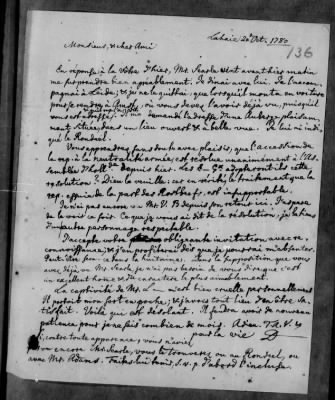 Lahaie 20 Oct. 1780
136
Monsieur, & cher Ami
En réponse à la Vôtre d'hier, Mr. Searle vint avant hier matin
me surprendre bien agréablement. Je dinai avec lui. Je l'accom-
pagnai à Leide; & je ne le quittai, que lorsqu'il monta en voiture
pour se rendre à Amst., où vous devez l'avoir déjà vu, puisqu'il
vous est adressé. Il me demanda une Auberge plaisam-
ment située, dans un lieu ouvert & à belle vue. Je lui ai indi-
qué le Rondeel.
Vous apprendrez sans doute avec plaisir, que l'accession de
la rep. à la neutralité armée, est résolue unanimement à l'As-
semblée d'Holl. depuis hier. Les 6 adopteront-ils cette
résolution? Dieu le veuille; car en vérité le traitement que la
rep. essuie de la part des Rostbeefs, est insupportable.
Je n'ai pas encore vu Mr. V. B depuis son retour ici. J'espere
de le voir ce soir. Ce que je vous ai dit de la résolution, je le tiens
d'un autre personnage respectable.
J'accepte votre obligeante invitation, avec re-
connoissance; & j'en profiterai dès que je pourrai m'absenter.
Peut-être dans la huitaine. Dans la supposition que vous
avez déjà vu Mr. Searle, je n'ai pas besoin de vous dire que c'est
un excellent homme, & du caractere le plus aimable.
La captivité de Mr. L est bien cruelle personnellement
Il portoit mon fort en poche; & j'avois tout lieu d'en être sa-
tisfait. Voilà qui est distant. Il faudra avoir de nouveau
patience pour je ne sais combien de mois. Adieu. T. A. V. S
pour la vie D
Si, contre toute apparence, vous n'aviez
pas vu encore Mr. Searle, vous le trouverez ou au Rondeel, ou
avec Mr. Adams. Faites lui tenir, s. v. p. d'abord l'incluse.